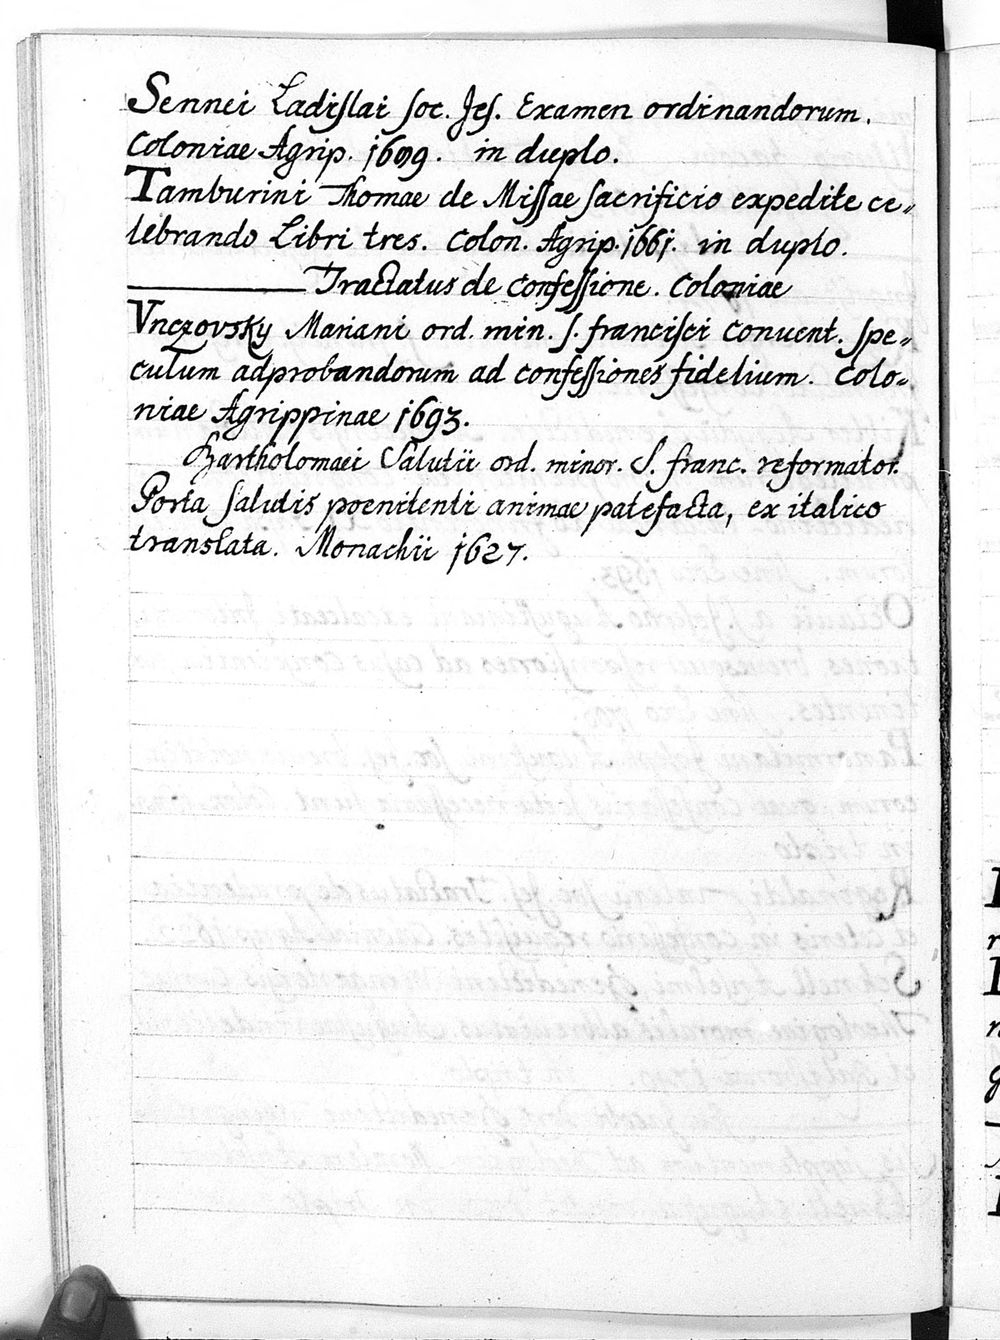 Sennei Ladislai soc. Jes. Examen ordinandorum.
Coloniae Agrip. 1699. in duplo.
Tamburini Thomae de Missae sacrificio expedite ce„
lebrando Libri tres. Colon. Agrip. 1661. in duplo.
——— Tractatus de confessione. Coloniae
Vnczovsky Mariani ord. min. S. francisci conuent. spe„
culum adprobandorum ad confessiones fidelium. Colo„
niae Agrippinae 1693.
Bartholomaei Salutii ord. minor. S. franc. reformator.
Porta salutis poenitenti animae patefacta, ex italico
translata. Monachii 1627.